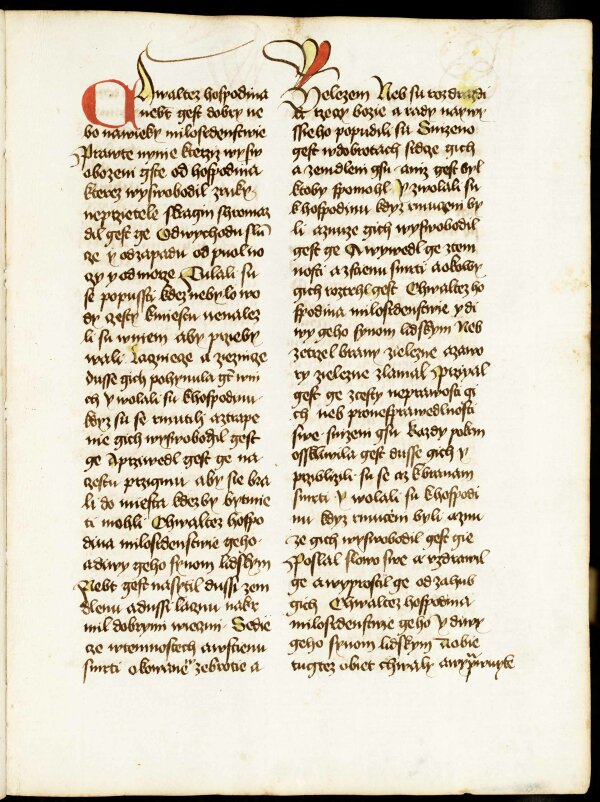 Chwaltez hospodina
nebt gest dobry ne
bo nawieky milosrdenstwie
Prawte nynie kterziz wyswo
bozeni gste od hospodina
kterez wyswobodil z ruky
neprzietele s kragin shromaz
dil gest ge Od wychodu slu͞
ce y od zapadu od puolno
cy y od morze Blúdili su
se po pussti kdez nebylo wo
dy czesty k miestu nenalez
li su w niem aby przieby
wali Laczniege a ziezniege
dusse gich pohynula gt͞ w ni
ch y wolali su k hospodinu
kdyz su se rmutili a z trape
nie gich wyswobodil gest
ge A prziwedl gest ge na
czestu przigmu aby sie bra
li do miesta kdezby bytmie
ti mohli Chwaltez hospo
dina milosrdenstwie geho
a diwy geho synom lidskym
Nebt gest nasytil dussi zem
dlenu a dussi lacznu nakr
mil dobrymi wieczmi Sedie
cze w temnostech a w stienu
smrti okowane w zebrotie a
Zelezem Neb su rozdrazdi
li rzeczy bozie a rady naywy
ssieho popudili su Snizeno
gest w dobrotach sidcze gich
a zemdleni gsu aniz gest byl
ktoby spomohl Y zwolali su
k hospodinu kdyz rmuceni by
li a z nuze gich wyswobodil
gest ge A wywedl ge z tem
nosti a z stienu smrti a okowy
gich roztrhl gest Chwaltez ho
spodina milosrdenstwie y di
wy geho synom lidskym Neb
zetrzel brany zielezne a zawo
ry zielezne zlamal Prziyal
gest ge z cesty neprawosti gi
ch neb pro nesprawedlnosti
swe snizeni gsu Kazdy pokrm
osskliwila gest dusse gich y
przibliziili su se az k branam
smrti Y wolali su k hospodi
nu kdyz rmuceni byli a z nu
ze gich wyswobodil gest gie
Poslal slowo swe a uzdrawil
ge a wyprostil ge od zahub
gich Chwaltez hospodina
milosrdenstwie geho y diwy
geho synom lidskym A obie
tugtez obiet chwaly a wyprawugte